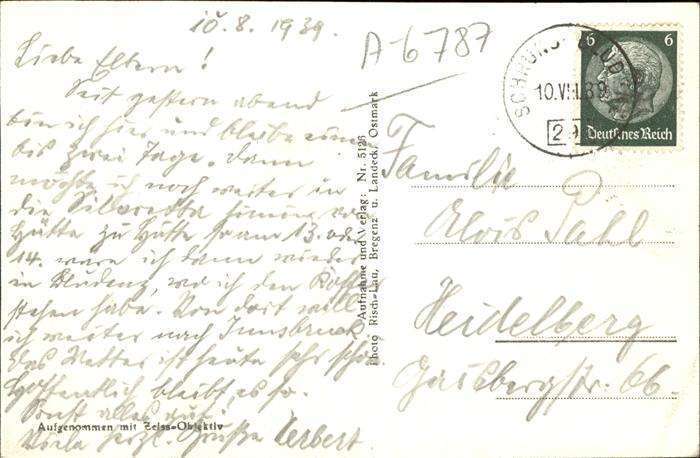 10.8.1939.
A-6787
Liebe Eltern!
Seit gestern abend
bin ich hier und bleibe einen
bis zwei Tage. Dann
möchte ich noch weiter in
die Silvretta hinein von
Hütte zu Hütte so am 13. oder
14. wäre ich dann wieder
in Bludenz, wo ich den Koffer
stehen habe. Von dort will
ich weiter nach Innsbruck.
Das Wetter ist heute sehr schön.
Hoffentlich bleibt es so.
Sonst alles gut.
Aufgenommen mit Zeiss-Objektiv
Viele herzl. Grüße Herbert
Aufnahme und Verlag: Nr. 5126
Photo Risch-Lau, Bregenz u. Landeck, Ostmark
SCHRUNS
10.VIII.39
6 6
Deutsches Reich
Familie
Alois Pahl
Heidelberg
Gaisbergstr. 66.